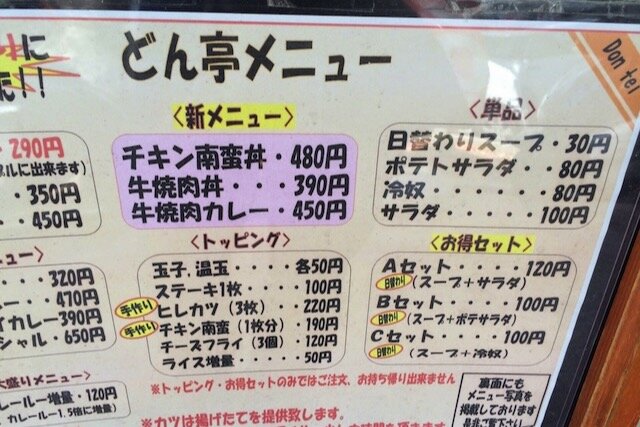 に
!!
どん亭メニュー
Don tei
290円
に出来ます)
350円
450円
〈新メニュー〉
チキン南蛮丼・480円
牛焼肉丼・・・390円
牛焼肉カレー・450円
〈単品〉
日替わりスープ・30円
ポテトサラダ・・80円
冷奴・・・・・80円
サラダ・・・・100円
ュー〉
320円
470円
イカレー390円
シャル・650円
〈トッピング〉
玉子,温玉・・・・各50円
ステーキ1枚・・・・100円
手作り ヒレカツ(3枚)・・220円
手作り チキン南蛮(1枚分)・190円
チーズフライ(3個)・120円
ライス増量・・・・50円
〈お得セット〉
Aセット・・・・120円
日替わり (スープ+サラダ)
Bセット・・・・100円
日替わり (スープ+ポテサラダ)
Cセット・・・・100円
日替わり (スープ+冷奴)
大盛りメニュー〉
レールー増量・120円
カレールー1.5倍に増量)
※トッピング・お得セットのみではご注文、お持ち帰り出来ません
※カツは揚げたてを提供致します。
裏面にも
メニュー写真を
掲載しております
是非ご覧下さい